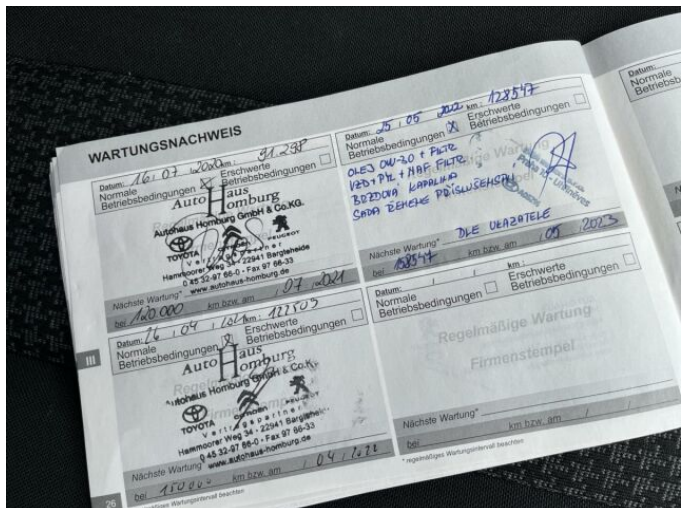 WARTUNGSNACHWEIS
Datum: 16 / 07 / 2020 km: 91.298
Normale Betriebsbedingungen
Erschwerte Betriebsbedingungen
Auto Haus Homburg
Autohaus Homburg GmbH & Co.KG.
TOYOTA CITROËN PEUGEOT
Vertragspartner
Hammoorer Weg 34 - 22941 Bargteheide
0 45 32-97 66-0 - Fax 97 66-33
www.autohaus-homburg.de
Nächste Wartung*
bei 120 000 km bzw. am / 07 / 2021
Datum: 26 / 04 / 2021 km: 122509
Normale Betriebsbedingungen
Erschwerte Betriebsbedingungen
Auto Haus Homburg
Autohaus Homburg GmbH & Co.KG.
TOYOTA CITROËN PEUGEOT
Vertragspartner
Hammoorer Weg 34 - 22941 Bargteheide
0 45 32-97 66-0 - Fax 97 66-33
www.autohaus-homburg.de
Nächste Wartung*
bei 150000 km bzw. am / 04 / 2022
* regelmäßiges Wartungsintervall beachten
III
26
Datum: 25 / 05 2022 km: 128547
Normale Betriebsbedingungen
Erschwerte Betriebsbedingungen
OLEJ 0W-30 + FILTR
VZD + PYL + NAF. FILTR
BRZDOVA KAPALINA
SADA ŘEMENE PŘÍSLUŠENSTVÍ
Praha 10 - Uhříněves
DLE UKAZATELE
Nächste Wartung*
bei 158547 km bzw. am / 05 / 2023
Datum: / / km:
Normale Betriebsbedingungen
Erschwerte Betriebsbedingungen
Regelmäßige Wartung
Firmenstempel
Nächste Wartung*
bei km bzw. am / /
* regelmäßiges Wartungsintervall beachten
Datum:
Normale